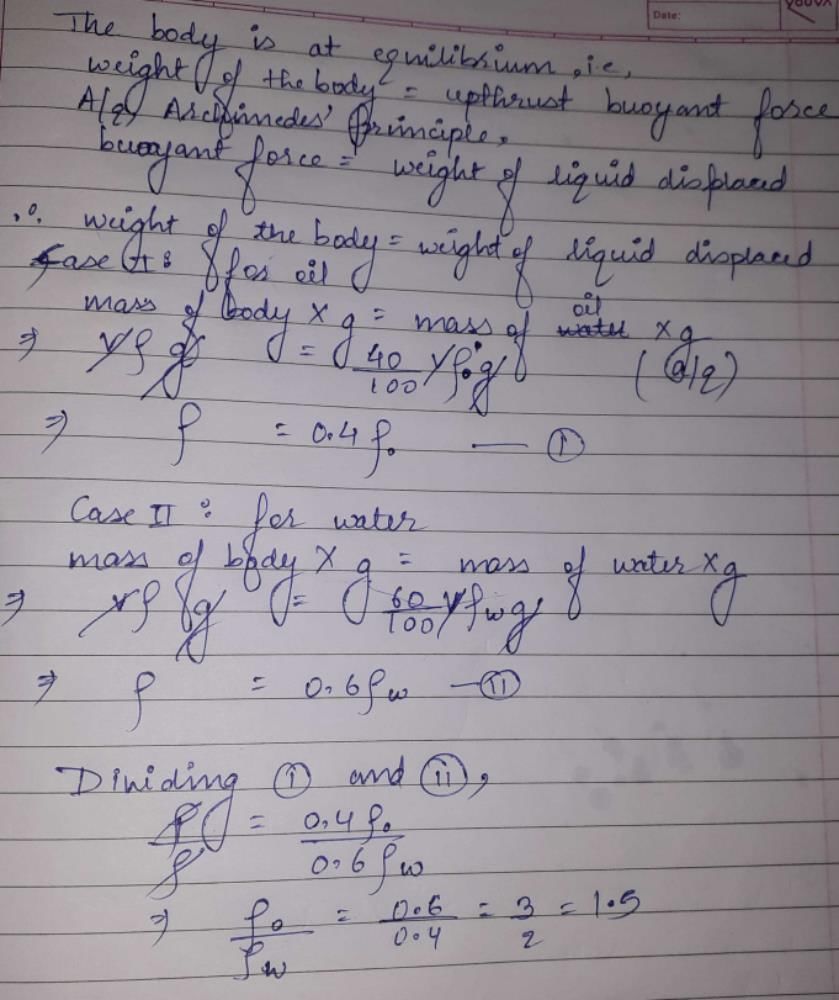 Date:
YOUVA
The body is at equilibrium, i.e,
weight of the body = upthrust buoyant force
A/q Archimedes' Principle,
buoyant force = weight of liquid displaced
∴ weight of the body = weight of liquid displaced
Case I : for oil
mass of body × g = mass of water oil × g
⇒ Vρg = 40/100 Vρₒg (a/q)
⇒ ρ = 0.4ρₒ — (i)
Case II : for water
mass of body × g = mass of water × g
⇒ Vρg = 60/100 Vρwg
⇒ ρ = 0.6ρw — (ii)
Dividing (i) and (ii),
ρ/ρ = 0.4ρₒ/0.6ρw
⇒ ρₒ/ρw = 0.6/0.4 = 3/2 = 1.5